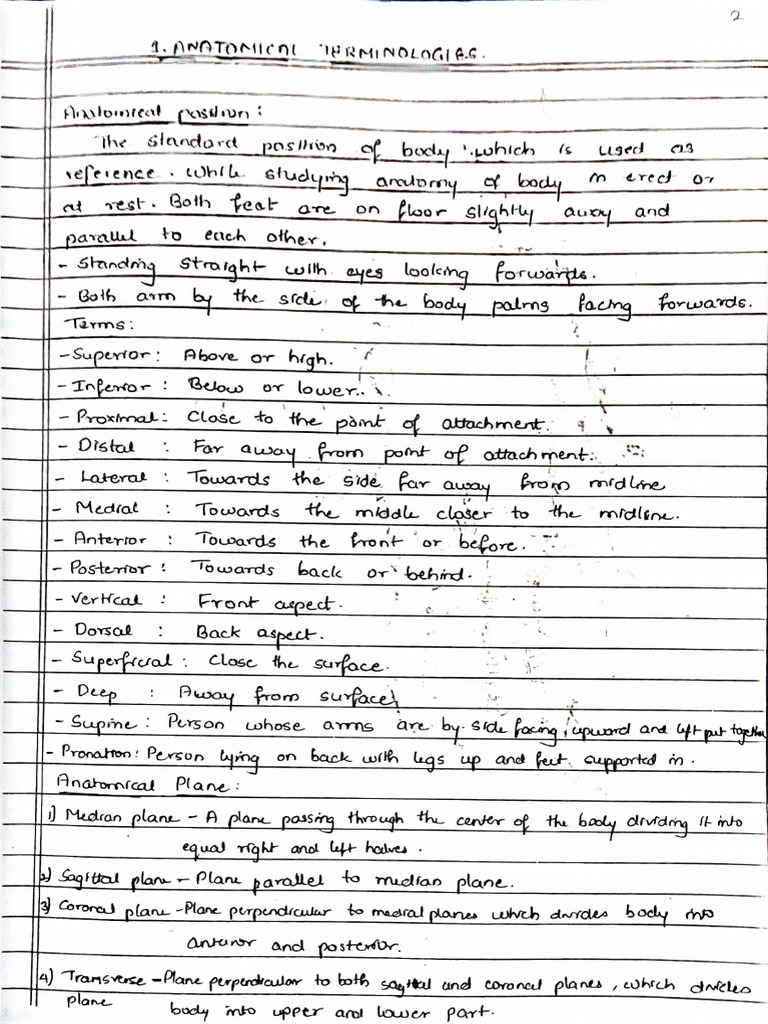 2
1. ANATOMICAL TERMINOLOGIES.
Anatomical position :
The standard position of body which is used as
reference. While studying anatomy of body in erect or
at rest. Both feat are on floor slightly away and
parallel to each other.
- Standing straight with eyes looking forwards.
- Both arm by the side of the body palms facing forwards.
Terms :
- Superior : Above or high.
- Inferior : Below or lower.
- Proximal : Close to the point of attachment.
- Distal : Far away from point of attachment.
- Lateral : Towards the side far away from midline
- Medial : Towards the middle closer to the midline.
- Anterior : Towards the front or before.
- Posterior : Towards back or behind.
- Vertical : Front aspect.
- Dorsal : Back aspect.
- Superficial : Close the surface.
- Deep : Away from surface
- Supine : Person whose arms are by side facing, upward and left put together
- Pronation : Person lying on back with legs up and feet supported in.
Anatomical Plane :
1) Median plane - A plane passing through the center of the body dividing it into
equal right and left halves.
2) Sagittal plane - Plane parallel to median plane.
3) Coronal plane - Plane perpendicular to medial planes which divides body into
anterior and posterior.
4) Transverse - Plane perpendicular to both sagittal and coronal planes, which divides
plane body into upper and lower part.